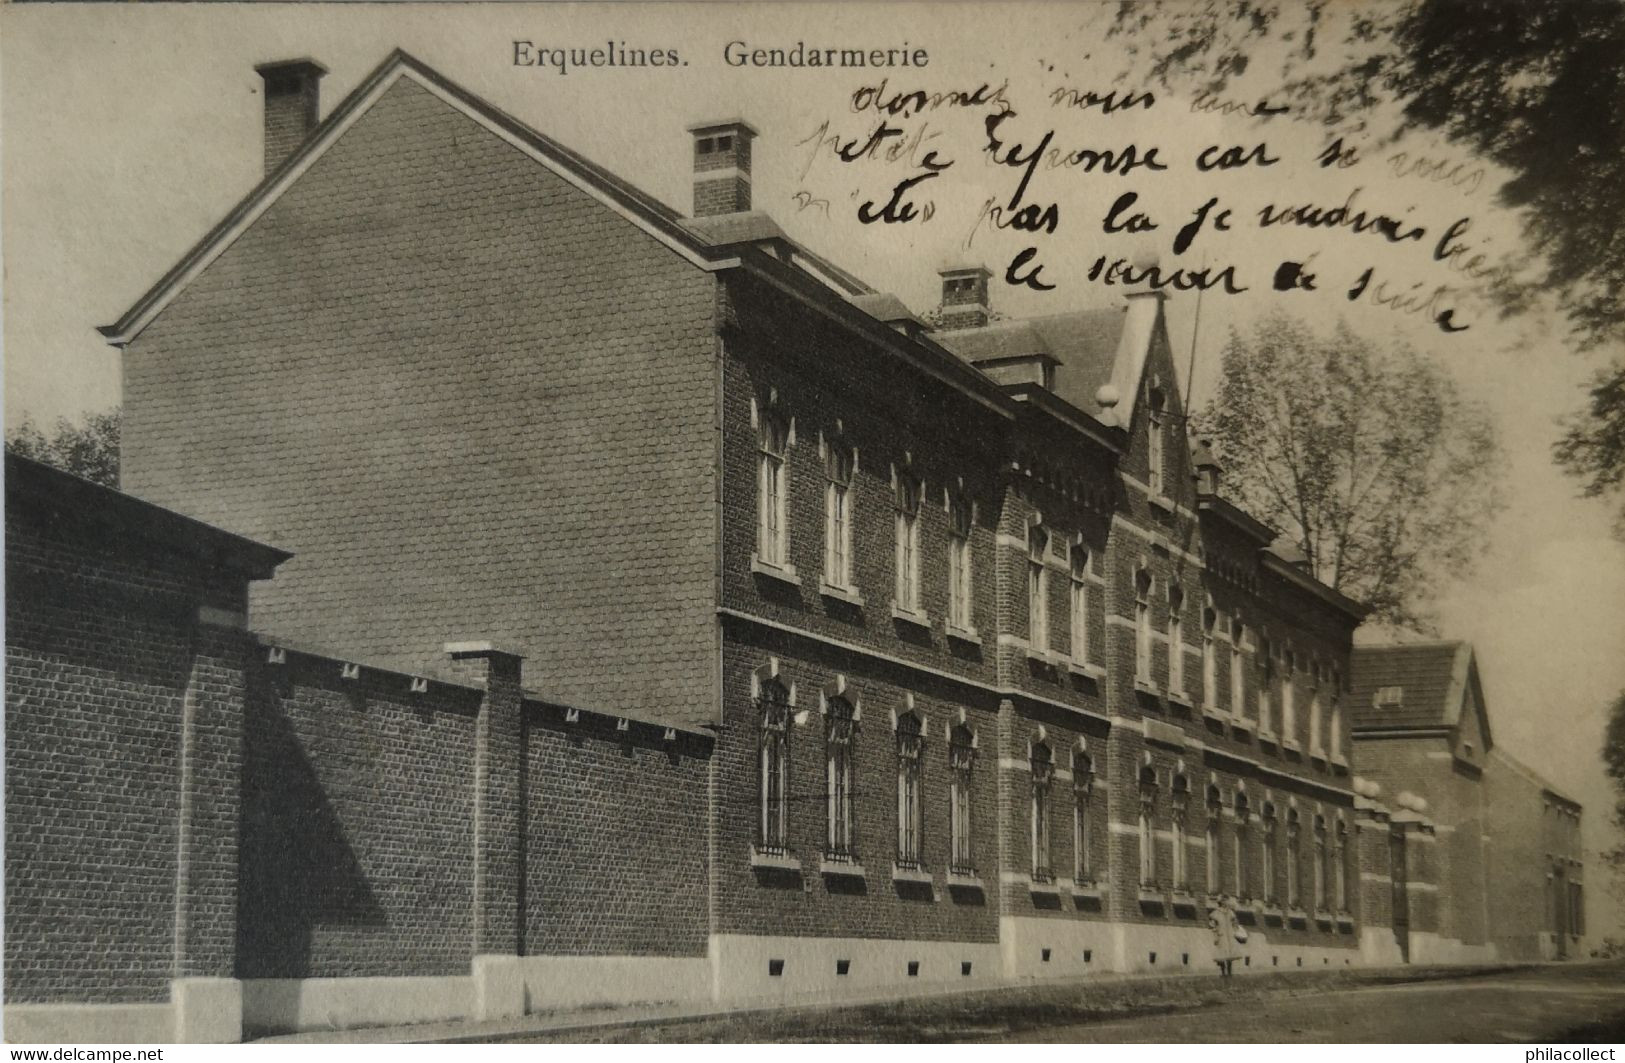 Erquelines. Gendarmerie
donnez nous une
petite reponse car si vous
n'etes pas la je voudrais bien
le savoir de suite
www.delcampe.net
philacollect